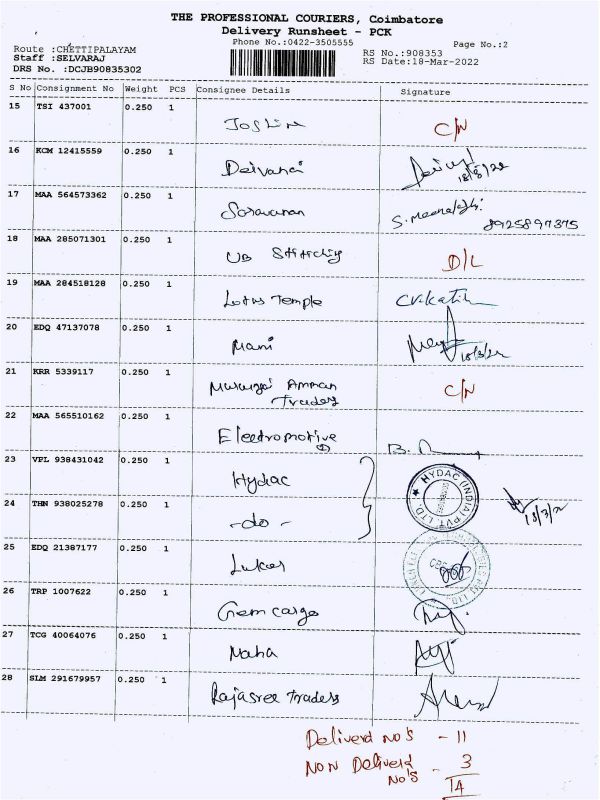 THE PROFESSIONAL COURIERS, Coimbatore
Delivery Runsheet - PCK
Phone No.:0422-3505555
Page No.:2
Route :CHETTIPALAYAM
Staff :SELVARAJ
DRS No. :DCJB90835302
RS No.:908353
RS Date:18-Mar-2022
S No Consignment No Weight PCS Consignee Details Signature
15 TSI 437001 0.250 1 Joshire C/N
16 KCM 12415559 0.250 1 Deivanai 18/3/22
17 MAA 564573362 0.250 1 Saravanan S. Meenakshi
8925897375
18 MAA 285071301 0.250 1 UB Stitching D/L
19 MAA 284518128 0.250 1 Lotus Temple
20 EDQ 47137078 0.250 1 Mani 18/3/22
21 KRR 5339117 0.250 1 Murugai Amman C/N
Traders
22 MAA 565510162 0.250 1 Electromotive
23 VPL 938431042 0.250 1 Hydac HYDAC (INDIA) PVT. LTD
24 THN 938025278 0.250 1 -do- 18/3/22
25 EDQ 21387177 0.250 1 Lukas
26 TRP 1007622 0.250 1 Gem cargo
27 TCG 40064076 0.250 1 Maha
28 SLM 291679957 0.250 1 Rajasree Traders
Deliverd No's - 11
NON Deliverd - 3
No's
14